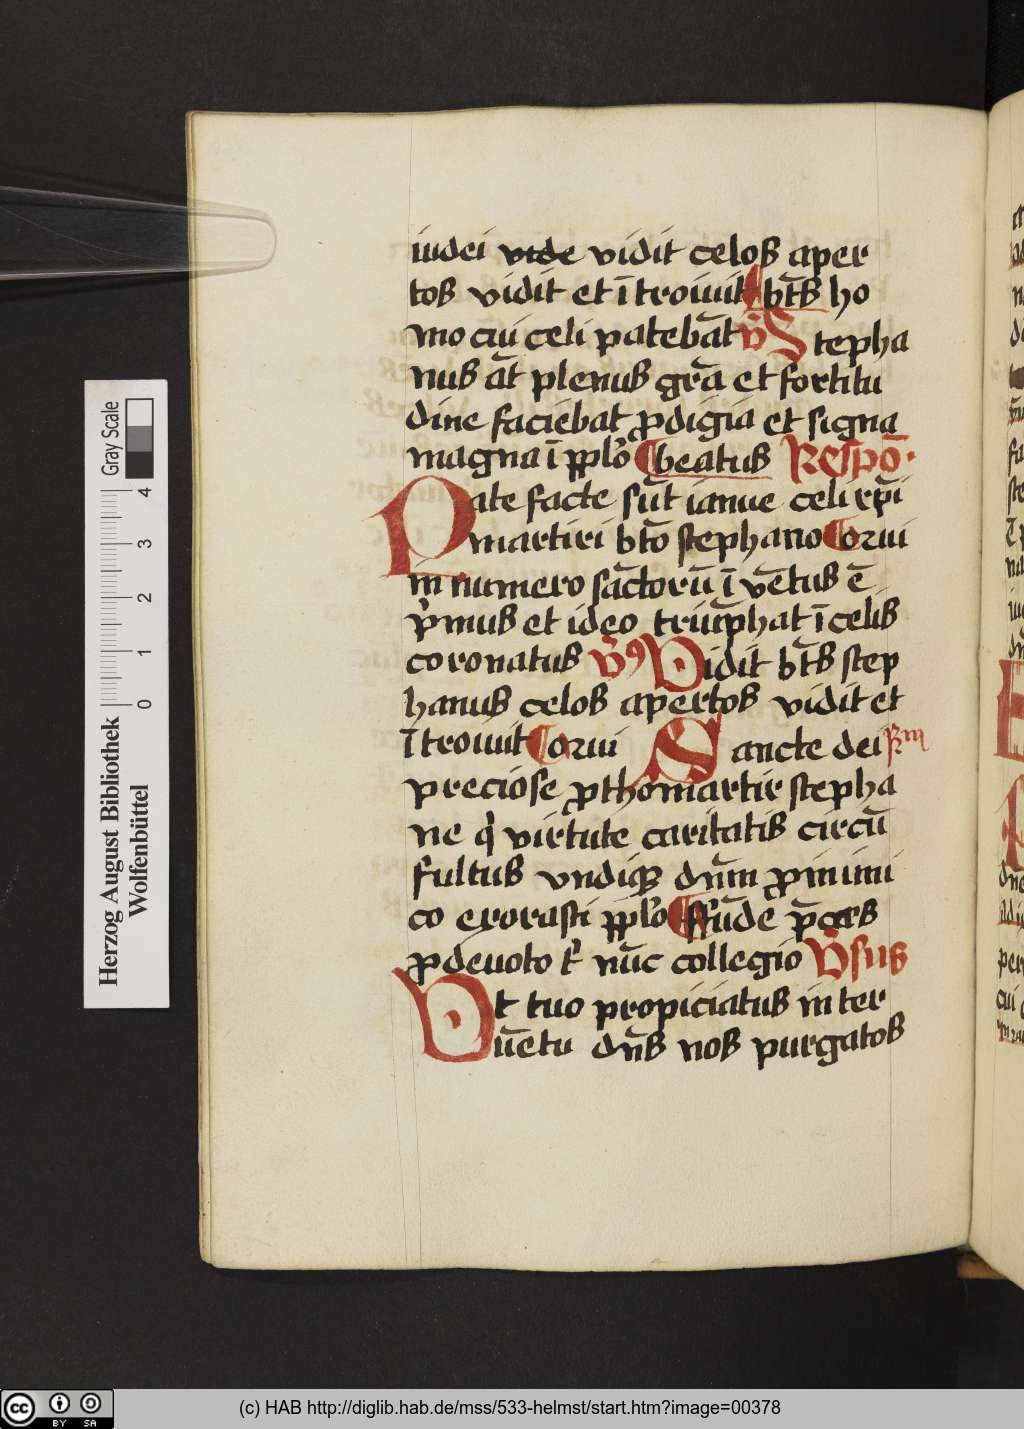 iudei vide vidit celos aper
tos vidit et ītroiuit bt̄s ho
mo cui celi patebāt v̄ Stepha
nus āt plenus grā et fortitu
dine faciebat ꝓdigia et signa
magna ī pplo beatus Respō
Pate facte sūt ianue celi xp̄i
martiri bt̄o stephano Qui
in numero sāctorū īuētus ē
pͥmus et ideo triūphat ī celis
coronatus v̄ꝰ Vidit bt̄s step
hanus celos apertos vidit et
ītroiuit Qui Sancte dei Rm
preciose ꝓthomartir stepha
ne qͥ virtute caritatis circū
fultus vndiqꝫ dn̄m ꝓ inimi
co exorasti pplo ffūde p̄ces
ꝓ deuoto tͥ nūc collegio V̄sus
Vt tuo propiciatus inter
uētu dn̄s nos purgatos
Gray Scale
0 1 2 3 4
Herzog August Bibliothek
Wolfenbüttel
cc BY SA
(c) HAB http://diglib.hab.de/mss/533-helmst/start.htm?image=00378